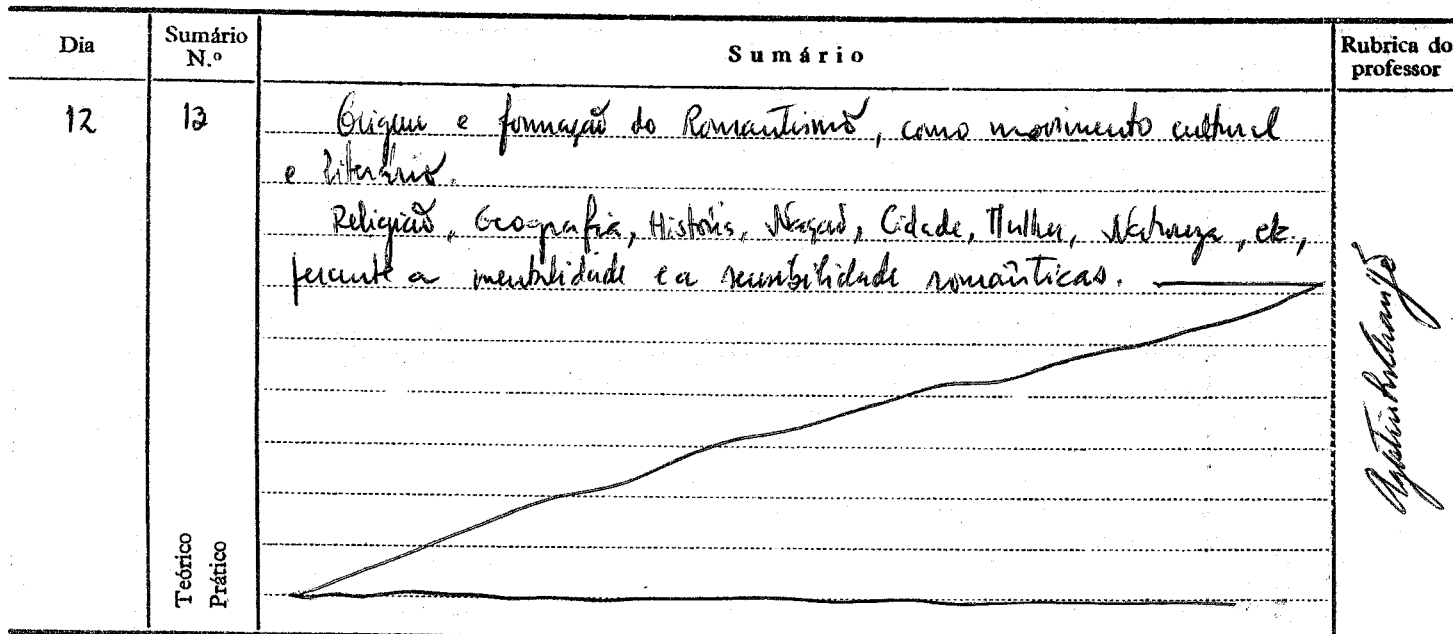 Dia
Sumário N.º
Sumário
Rubrica do professor
12
13
Origem e formação do Romantismo, como movimento cultural
e literário.
Religião, Geografia, História, Nação, Cidade, Mulher, Natureza, etc.,
perante a mentalidade e a sensibilidade românticas.
Teórico
Prático